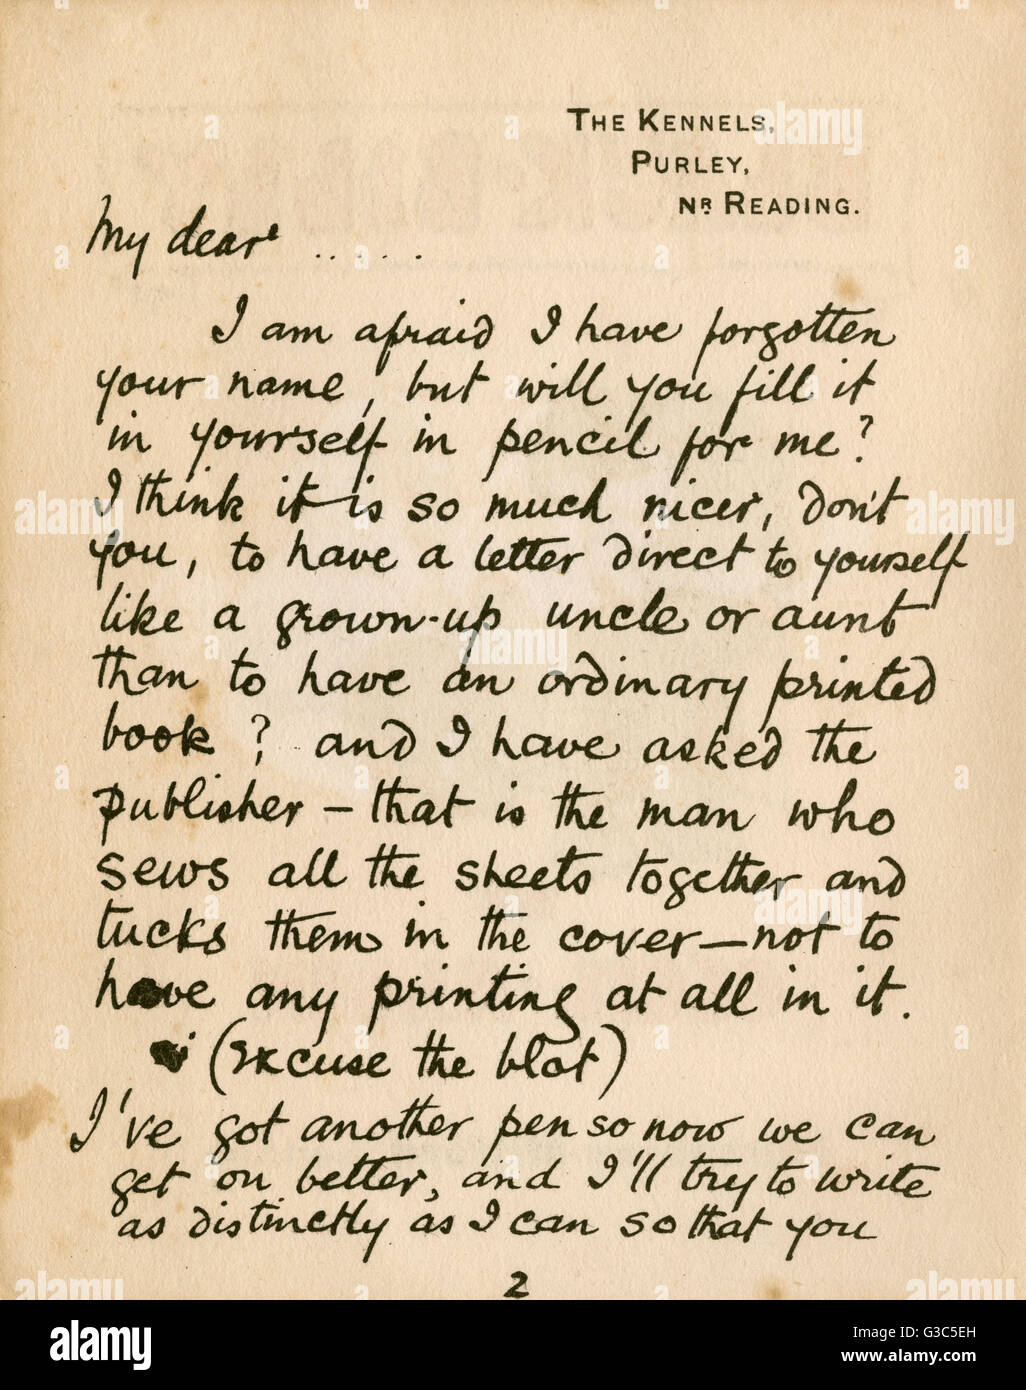 THE KENNELS,
PURLEY,
NR READING.
My dear .....
I am afraid I have forgotten
your name, but will you fill it
in yourself in pencil for me?
I think it is so much nicer, don't
you, to have a letter direct to yourself
like a grown-up uncle or aunt
than to have an ordinary printed
book? and I have asked the
publisher – that is the man who
sews all the sheets together and
tucks them in the cover – not to
have any printing at all in it.
(excuse the blot)
I've got another pen so now we can
get on better, and I'll try to write
as distinctly as I can so that you
2
alamy
Image ID: G3C5EH
www.alamy.com